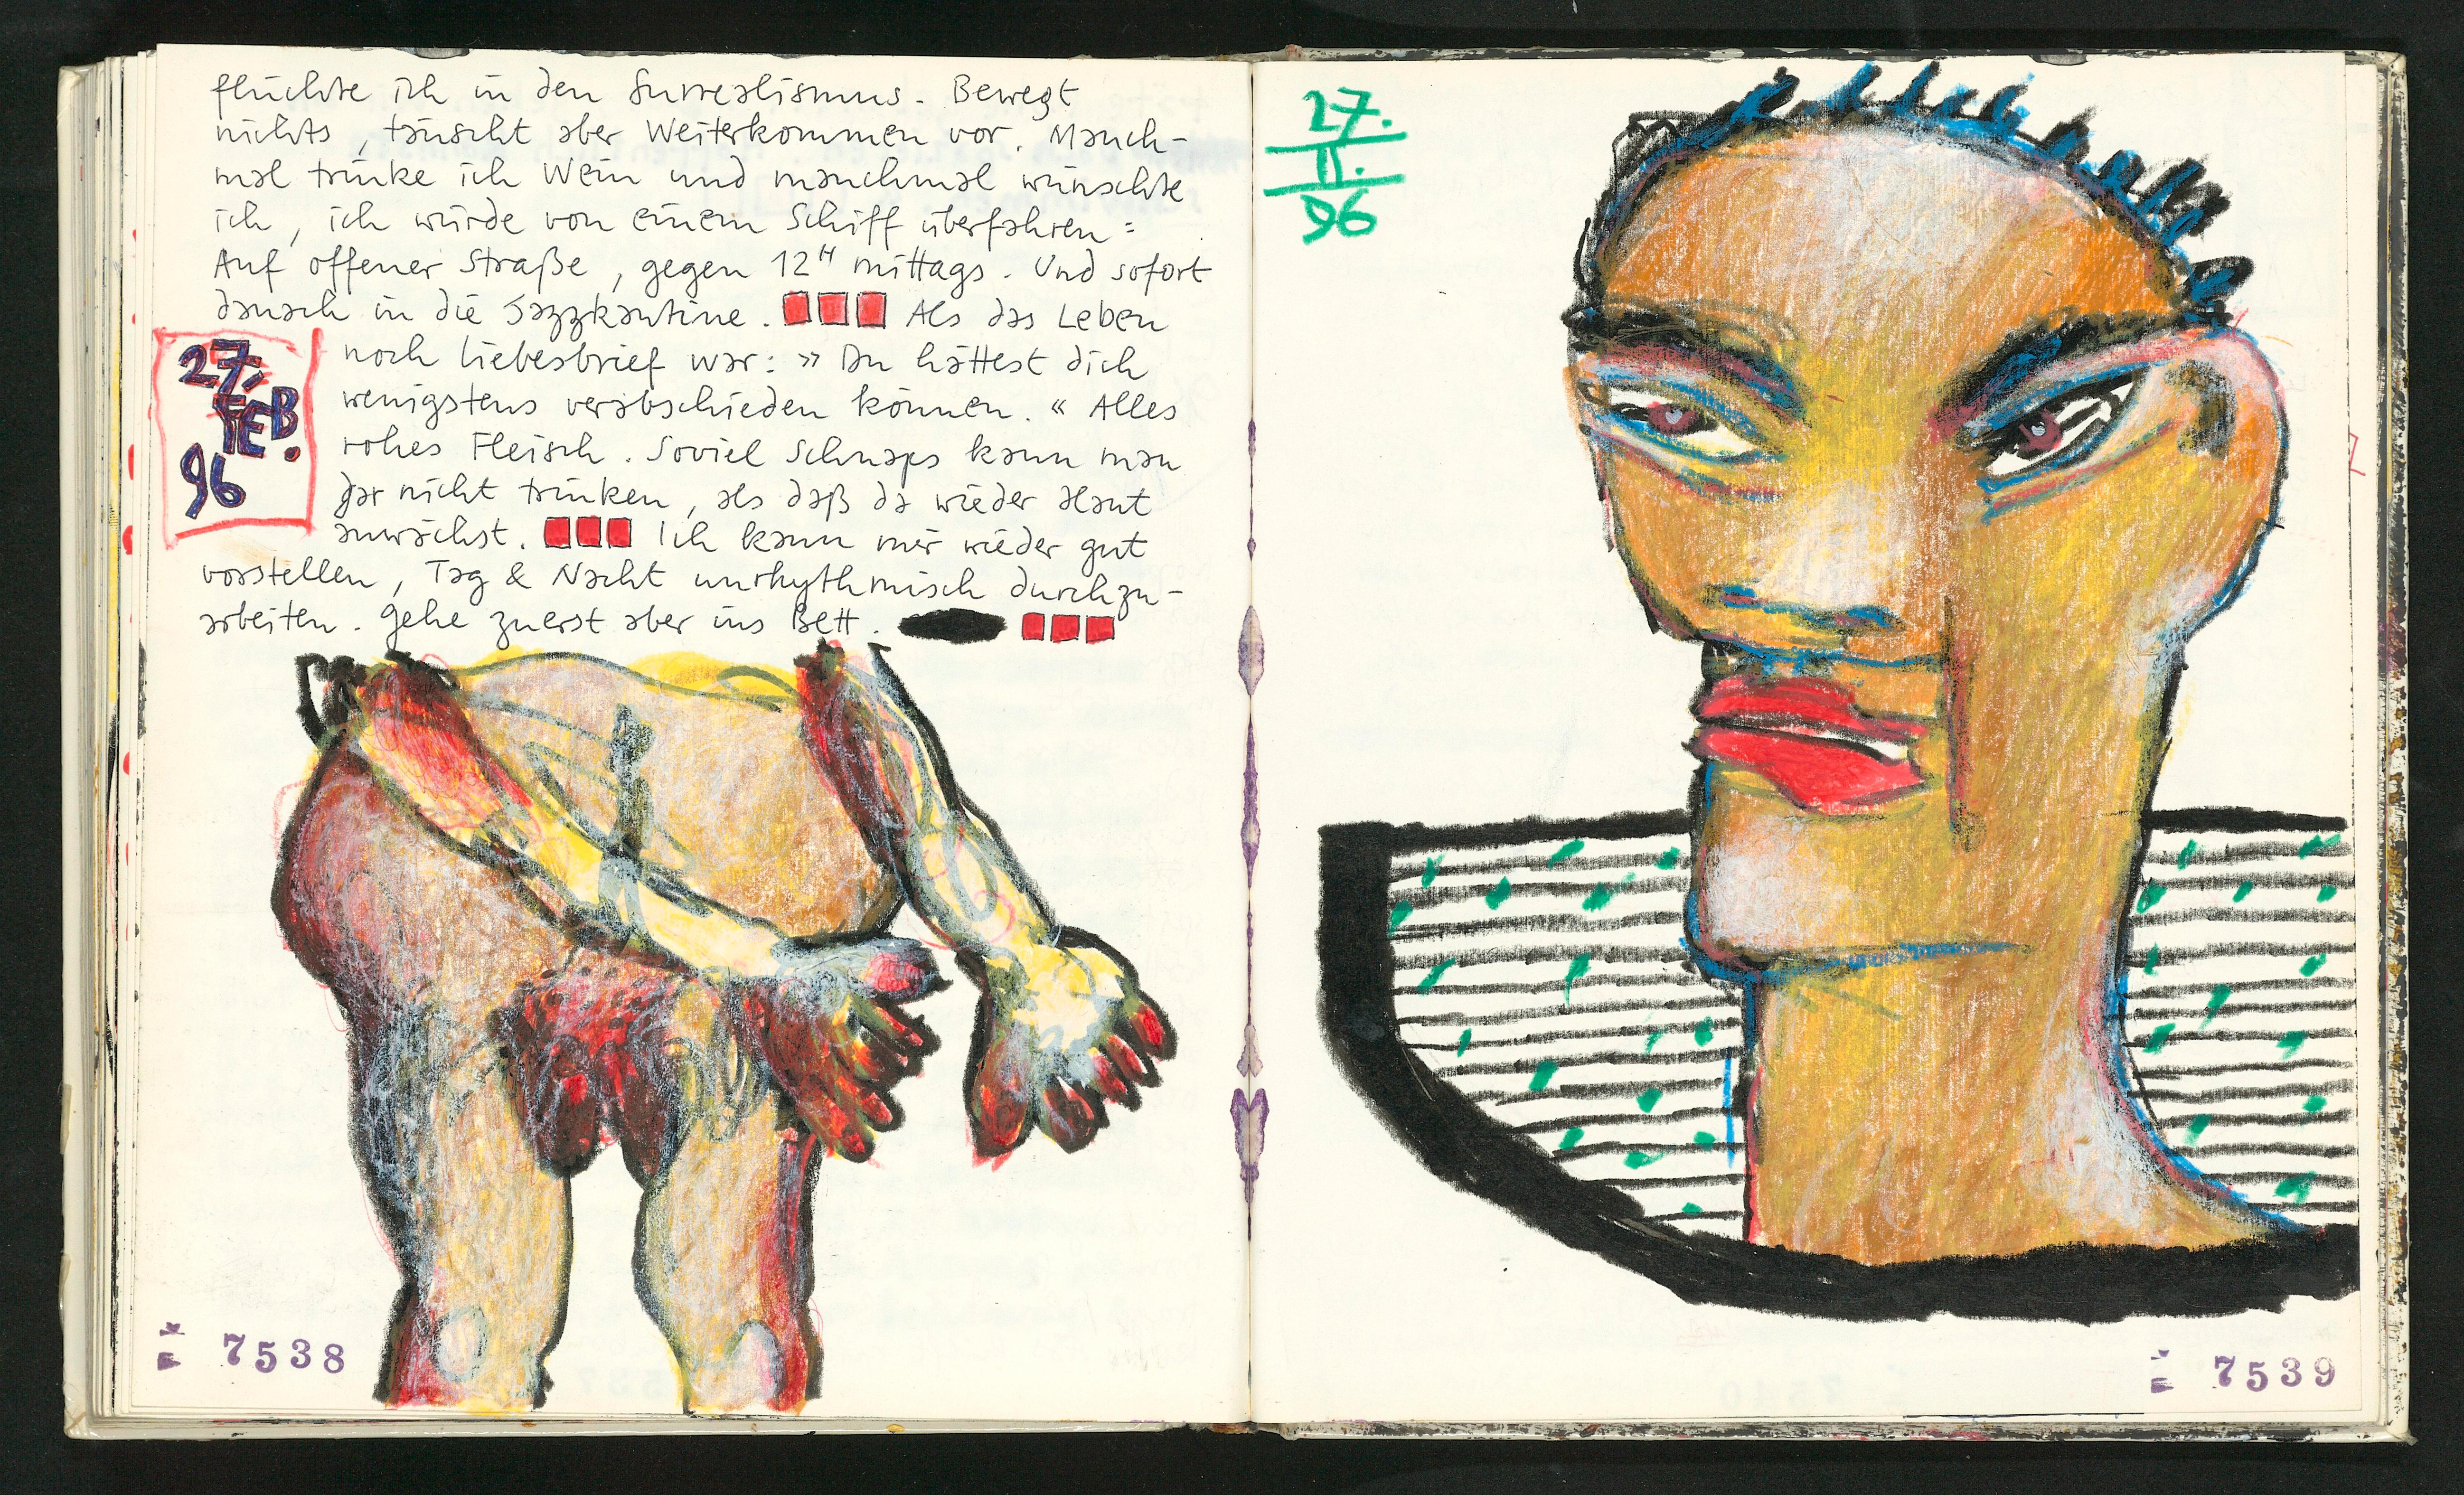 flüchte ich in den Surrealismus. Bewegt
nichts, täuscht aber Weiterkommen vor. Manch-
mal trinke ich Wein und manchmal wünschte
ich, ich würde von einem Schiff überfahren:
Auf offener Straße, gegen 12H mittags. Und sofort
danach in die Jazzkantine. Als das Leben
noch Liebesbrief war: »Du hättest dich
wenigstens verabschieden können.« Alles
rohes Fleisch. Soviel Schnaps kann man
gar nicht trinken, als daß da wieder Haut
anwächst. Ich kann mir wieder gut
vorstellen, Tag & Nacht unrhythmisch durchzu-
arbeiten. Gehe zuerst aber ins Bett.
27.
FEB.
96
7538
27.
II.
96
7539